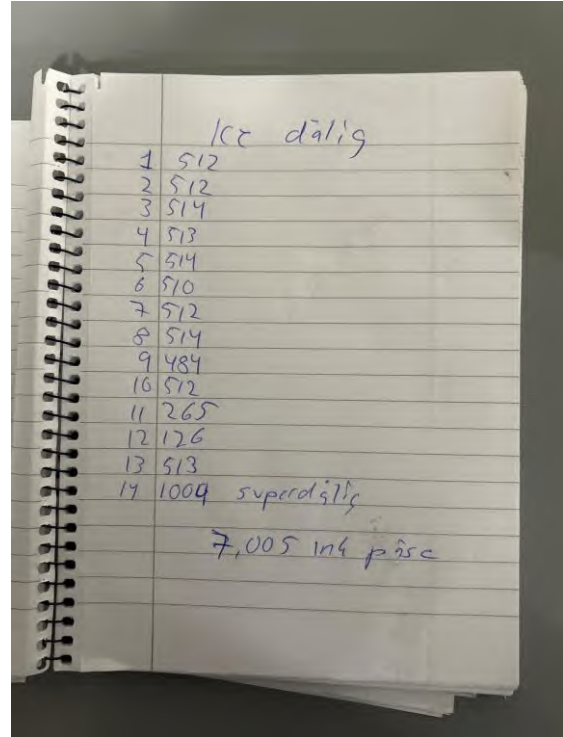 Kr dålig
1 512
2 512
3 514
4 513
5 514
6 510
7 512
8 514
9 484
10 512
11 265
12 126
13 513
14 1009 superdålig
7,005 ink påse